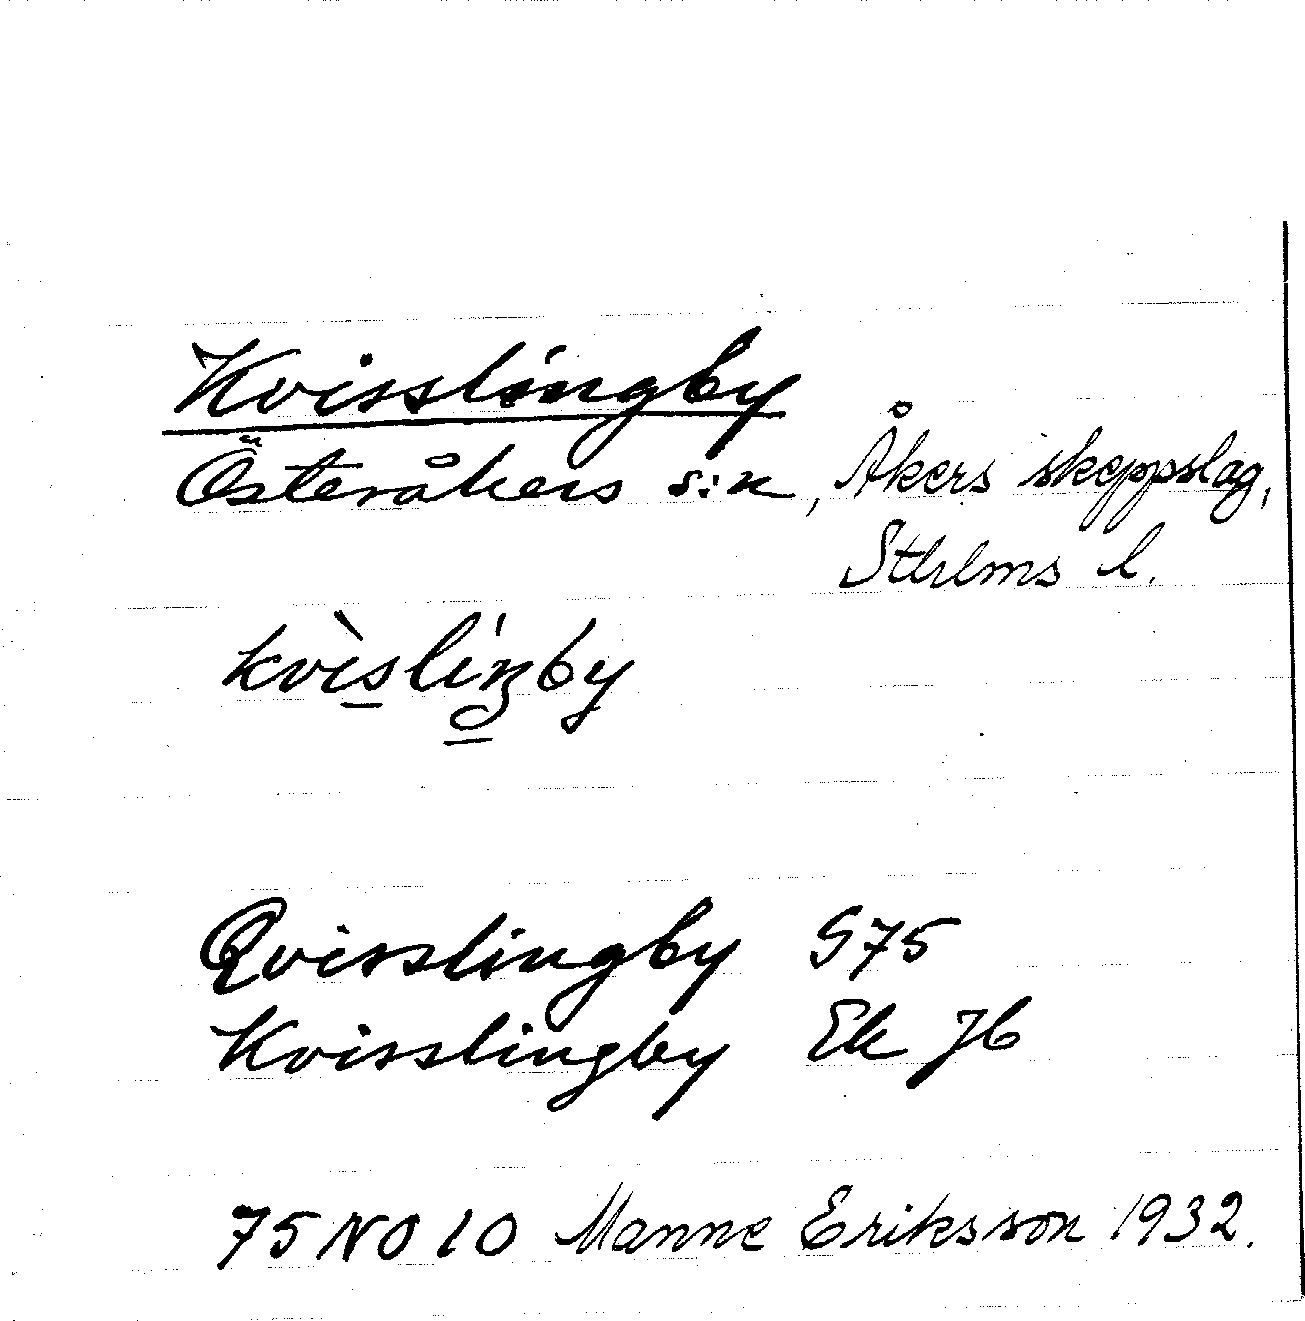 Kvisslingby
Österåkers s:n, Åkers skeppslag,
Sthlms l.
kvìslíŋby
Qvisslingby S75
Kvisslingby Ek Jb
75 NO 10 Manne Eriksson 1932.